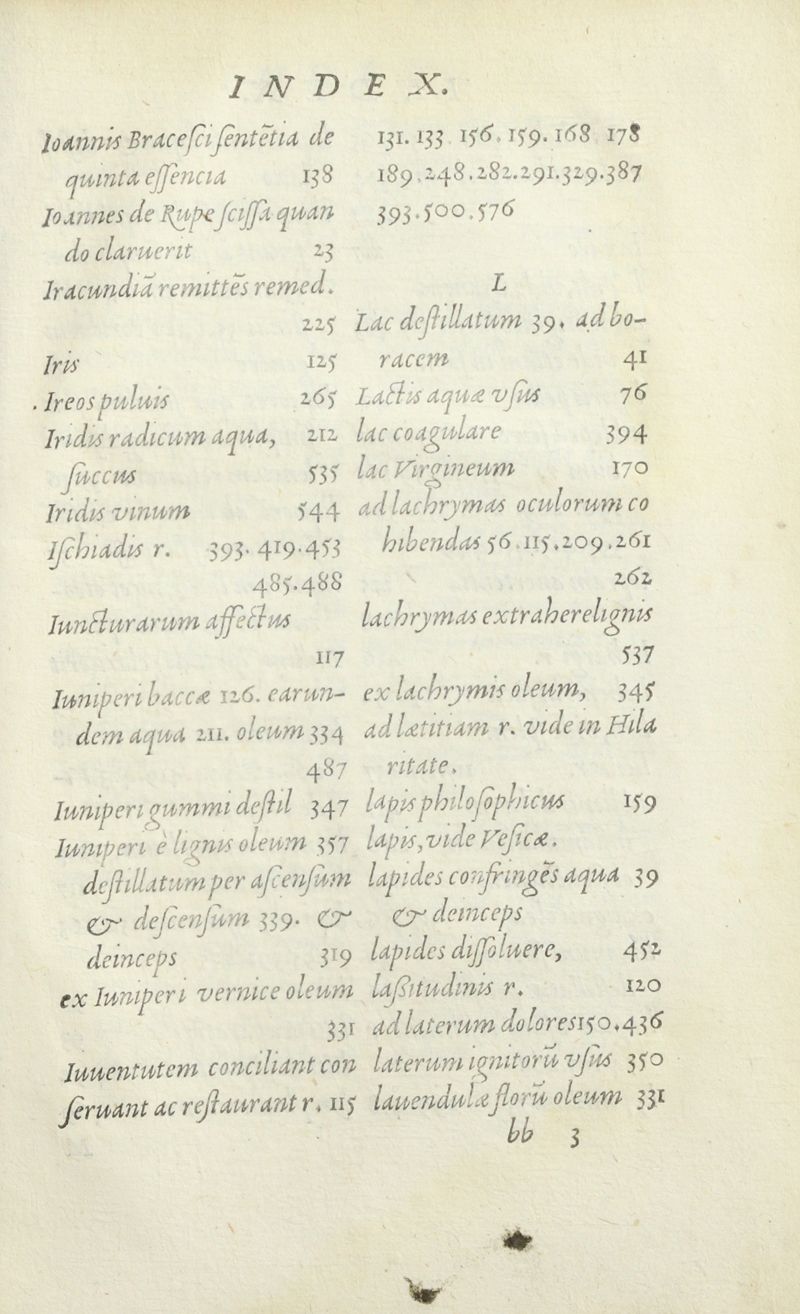 INDEX.
Ioannis Bracesci sentẽtia de
quinta essencia 138
Ioannes de Rupe scissa quan
do claruerit 23
Iracundiã remittẽs remed.
225
Iris 125
Ireos puluis 265
Iridis radicum aqua, 212
succus 535
Iridis vinum 544
Ischiadis r. 393. 419.453
485.488
Iuncturarum affectus
117
Iuniperi baccæ 126. earun-
dem aqua 211. oleum 334
487
Iuniperi gummi destil 347
Iuniperi è lignis oleum 357
destillatum per ascensum
& descensum 339. &
deinceps 319
ex Iuniperi vernice oleum
331
Iuuentutem conciliant con
seruant ac restaurant r. 115
131. 133. 156. 159. 168 178
189.248.282.291.329.387
393.500.576
L
Lac destillatum 39. ad bo-
racem 41
Lactis aquæ vsus 76
lac coagulare 394
lac Virgineum 170
ad lachrymas oculorum co
hibendas 56.115.209.261
262
lachrymas extrahere lignis
537
ex lachrymis oleum, 345
ad lætitiam r. vide in Hila
ritate.
lapis philosophicus 159
lapis, vide Vesicæ.
lapides confringẽs aqua 39
& deinceps
lapides dissoluere, 452
lassitudinis r. 120
ad laterum dolores 150.436
laterum ignitorũ vsus 350
lauendulæ florũ oleum 331
bb 3